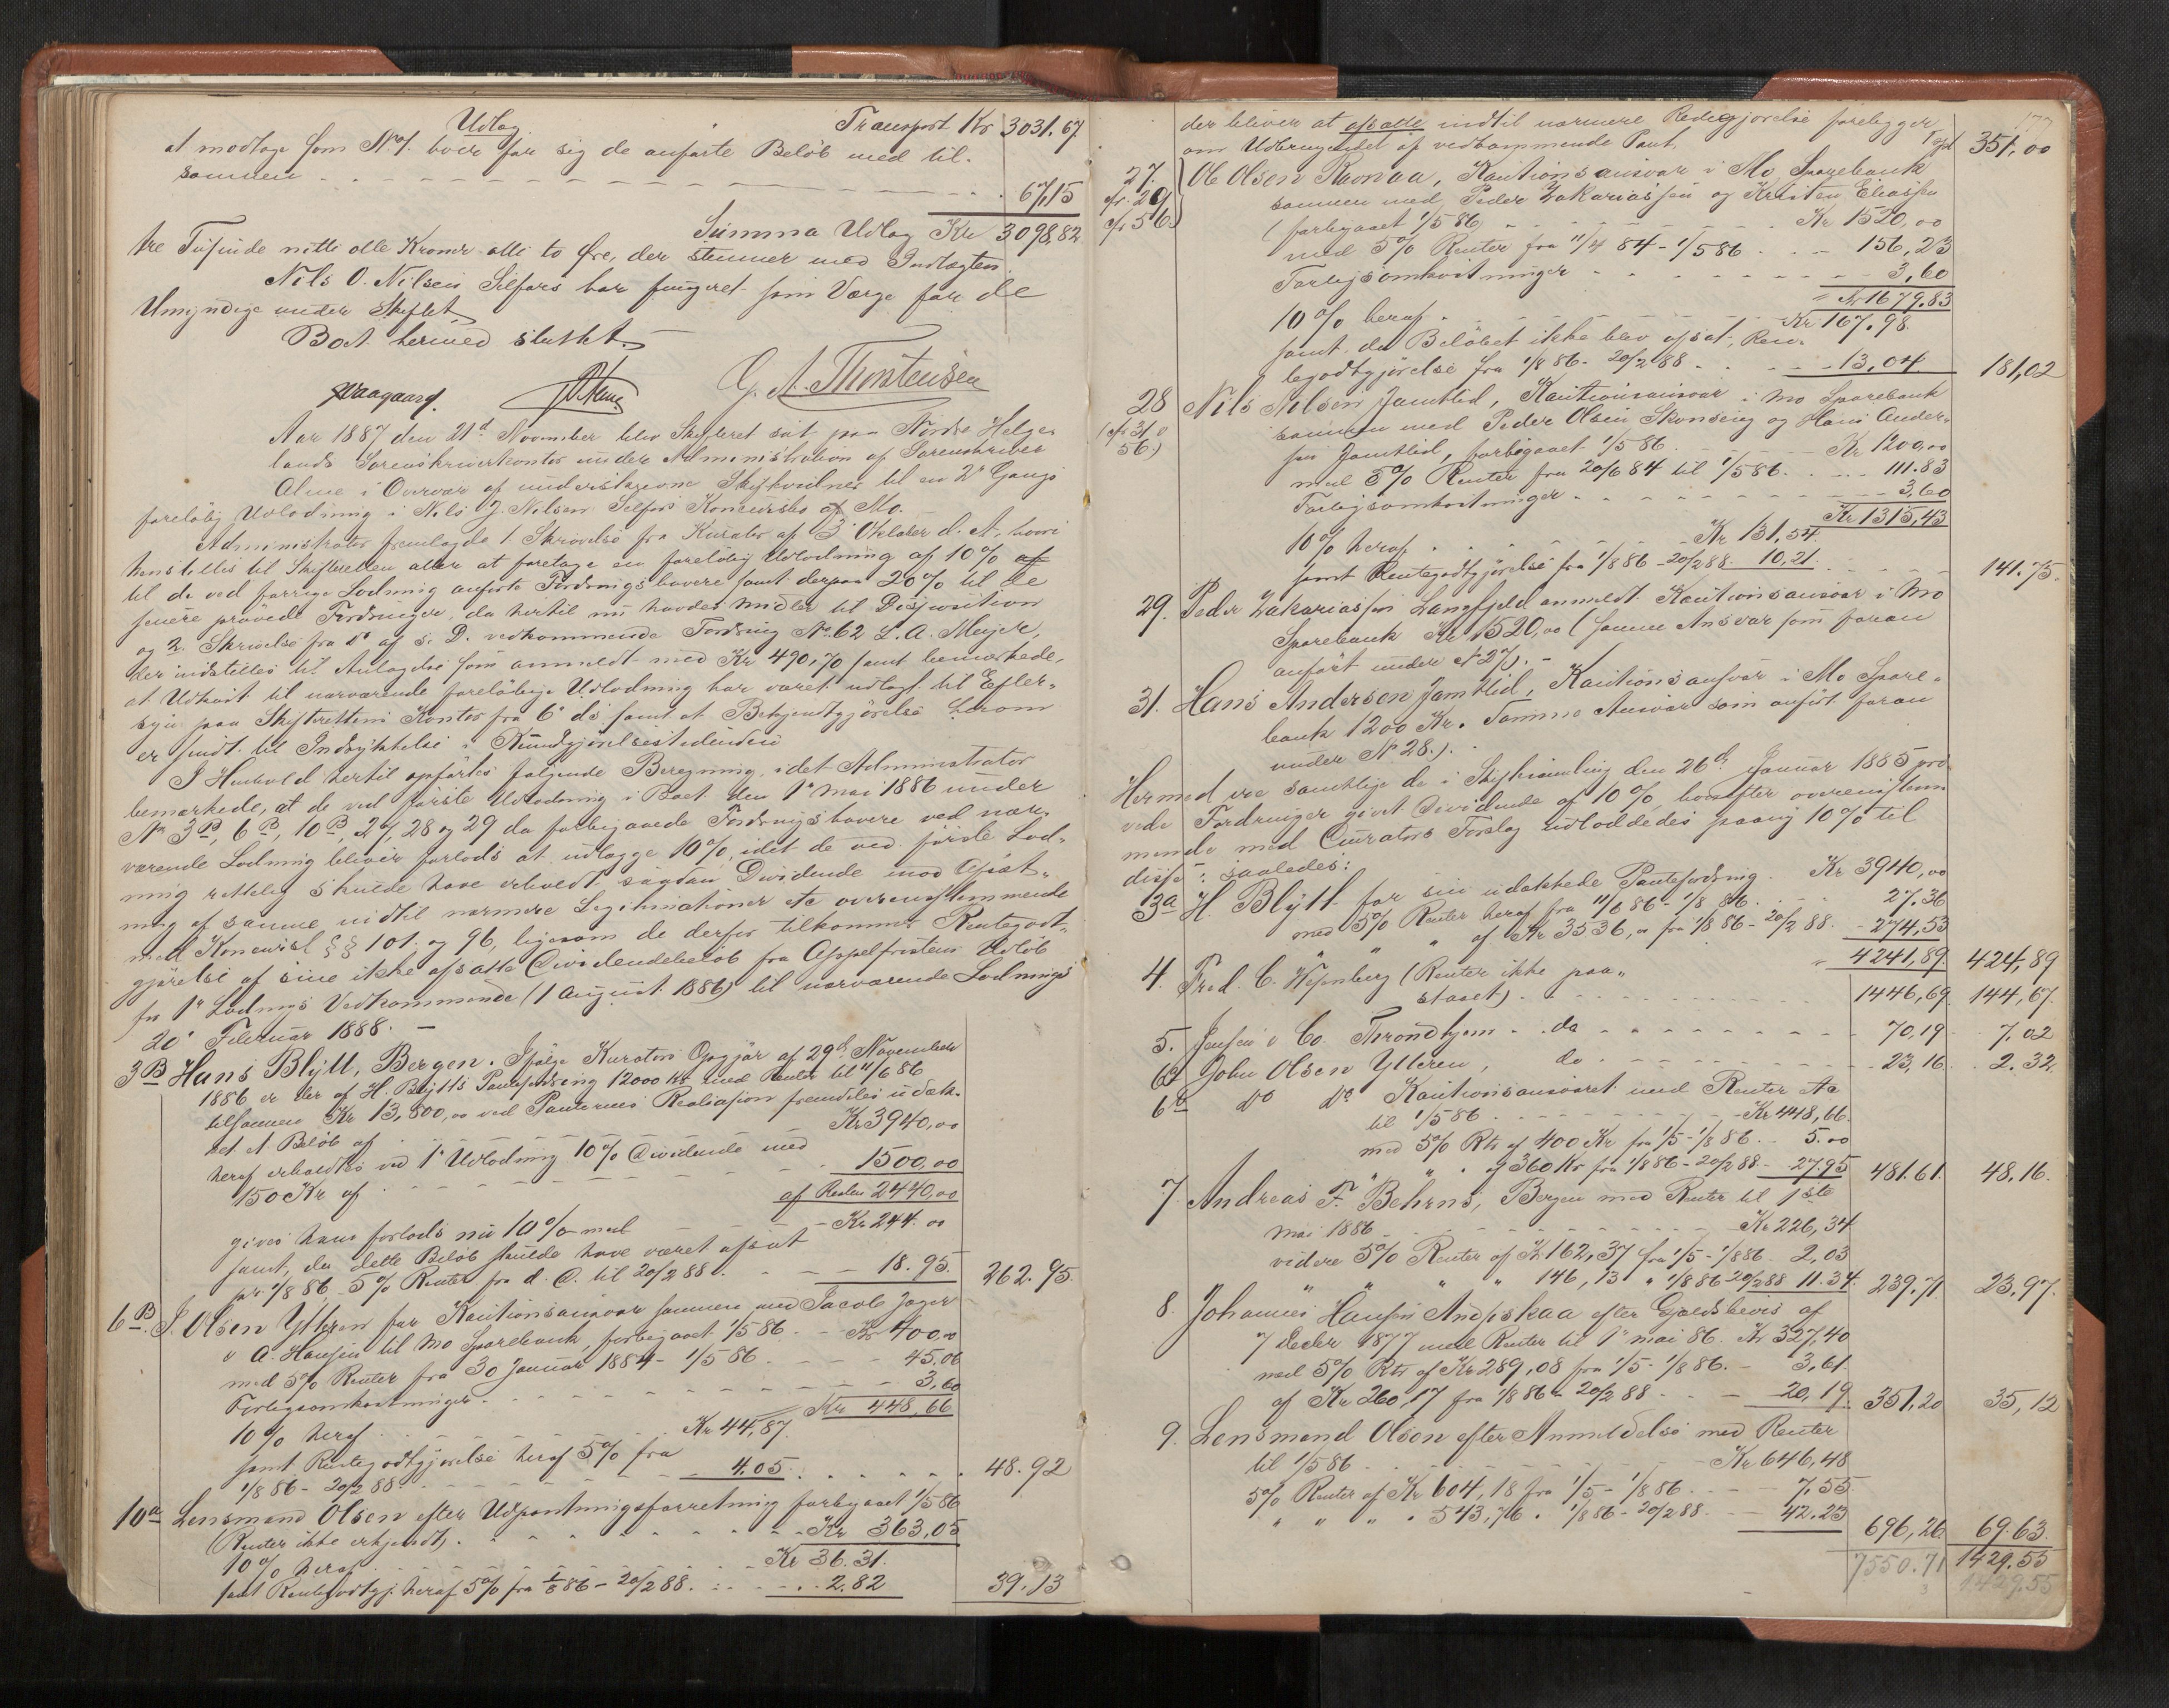 Udlæg Transport Kr 3031.67
at modtage som No 1. hver for sig de anførte Beløb med til-
sammen 67,15
Summa Udlæg Kr 3098,82
tre Tusinde nitti otte Kroner otti to Øre, der stemmer med Indtægten.
Nils O. Nilsen Selfors har fungeret som Værge for de
Umyndige under Skiftet
Boet hermed sluttet.
G. A. Thorstensen
Aar 1887 den 21de November blev Skifteret sat paa Nordre Helge-
lands Sorenskriverkontor under Administration af Sorenskriver
Olme i Overvær af understegnede Skiftevidner til en 2de Gangs
foreløbig Udlodning i Nils J. Nilsen Selfors Konkursbo af Mo.
Administrator fremlagde 1. Skrivelse fra Kurator af 3de Oktober d. A. hvori
henstilles til Skifteretten atter at foretage en foreløbig Udlodning af 10% af
til de ved forrige Lodning anførte Fordringshavere samt derpaa 20% til de
senere prøvede Fordringer, da hertil nu havdes Midler til Disposition
og 2. Skrivelse fra do af s. D. vedkommende Fordring No 62 L. A. Meyer,
der indstilles til Antagelse som anmeldt med Kr 490,70 samt bemærkede,
at Udkast til nærværende foreløbige Udlodning har været udlagt til Efter-
syn paa Skifterettens Kontor fra 6te ds samt at Bekjendtgjørelse herom
er sendt til Indrykkelse i Kundgjørelsestidenden
I Henhold hertil opførtes følgende Beregning, idet Administrator
bemærkede, at de ved første Udlodning i Boet den 1ste Mai 1886 under
No 3B, 6B, 10B, 27, 28 og 29 da forbigaaede Fordringshavere ved nær-
værende Lodning bliver forlods at udlægge 10%, idet de ved første Lod-
ning rettelig skulde have erholdt saadan Dividende mod Afsæt-
ning af samme indtil nærmere Legitimationer etc overensstemmende
med Konkursl §§ 101 og 96, ligesom de derfor tilkommer Rentegodt-
gjørelse af sine ikke afsatte Dividendebeløb fra Appelfristens Udløb
for 1ste Lodnings Vedkommende (1 August 1886) til nærværende Lodnings
20de Februar 1888. —
3B Hans Blytt, Bergen. Ifølge Kurators Opgjør af 29de November
1886 er der af H. Blytts Pantefordring 12000 Kr med Renter til 11/6 86
tilsammen Kr 13,800,00 ved Panternes Realisation fremdeles udæk-
ket et Beløb af Kr 3940,00
heraf erholdtes ved 1ste Udlodning 10% Dividende med
150 Kr af 1500.00
af Resten 2440,00
gives ham forlods nu 10% med Kr 244.00
samt, da dette Beløb skulde have været afsat
pr 1/8 86 5% Renter fra d. D. til 20/2 88. 18.95. 262.95.
6B. J. Olsen Ytteren for Kautionsansvar sammen med Jacob Jager
o A. Hansen til Mo Sparebank, forbigaaet 1/5 86. Kr 400.00
med 5% Renter fra 30 Januar 1884 - 1/5 86 45.06
Forligsomkostninger 3,60
Kr 448,66
10% heraf Kr 44,87.
samt Rentegodtgjørelse heraf 5% fra
1/8 86 - 20/2 88 4.05. 48.92
10a Lensmand Olsen efter Udpantningsforretning forbigaaet 1/5 86
(Renter ikke erkjendt). Kr 363,05
10% heraf Kr 36.31.
samt Rentegodtgj. heraf 5% fra 1/8 86 - 20/2 88. 2.82 39.13
der bliver at afsætte indtil nærmere Redegjørelse foreligger
om Udbringendet af vedkommende Pant. 351,00
27. Ole Olsen Ravnaa, Kautionsansvar i Mo Sparebank
cfr. 29 sammen med Peder Zakariassen og Kristen Eliassen
cfr 56) (forbigaaet 1/5 86) Kr 1520,00
med 5% Renter fra 11/4 84 - 1/5 86 156,23
Forligsomkostninger 3,60
Kr 1679.83
10% heraf Kr 167.98.
samt, da Beløbet ikke blev afsat, Ren-
tegodtgjørelse fra 1/8 86 - 20/2 88 13,04. 181,02
28 Nils Nilsen Jamtlid, Kautionsansvar i Mo Sparebank
(cfr 31 o sammen med Peder Olsen Skonseng og Hans Ander-
56.) sen Jamtlid, forbigaaet 1/5 86 Kr 1200,00
med 5% Renter fra 20/6 84 til 1/5 86 111.83
Forligsomkostninger 3,60
Kr 1315,43
10% heraf Kr 131,54.
samt Rentegodtgjørelse fra 1/8 86 - 20/2 88 10,21. 141.75.
29. Peder Zakariassen Langfjeld anmeldt Kautionsansvar i Mo
Sparebank Kr 1520,00 (samme Ansvar som foran
anført under No 27). -
31. Hans Andersen Jamtlid, Kautionsansvar i Mo Spare-
bank 1200 Kr. Samme Ansvar som anført foran
under No 28.).
Hermed ere samtlige de i Skiftesamling den 26de Januar 1885 prø-
vede Fordringer givet Dividende af 10%, hvorefter overensstem-
mende med Curators Forslag udloddedes paany 10% til
disse saaledes:
3a H. Blytt for sin udækkede Pantefordring. Kr 3940,00
med 5% Renter heraf fra 11/6 86 - 1/8 86. 27.36
" " " af Kr 3536,00 fra 1/8 86 - 20/2 88. 274,53
4241,89 424,89
4. Fred. C. Wesenberg (Renter ikke paa-
staaet) 1446,69. 144,67.
5. Jensen & Co Throndhjem do 70,19 7.02
6a John Olsen Ytteren, do 23,16. 2.32.
6b do do Kautionsansvaret med Renter etc
til 1/5 86 Kr 448,66.
med 5% Rtr af 400 Kr fra 1/5 - 1/8 86 5.00
" " " af 360 Kr fra 1/8 86 - 20/2 88 27.95 481.61. 48.16.
7. Andreas F. Behrens, Bergen med Renter til 1ste
Mai 1886 Kr 226,34
videre 5% Renter af Kr 162,37 fra 1/5 - 1/8 86 2,03
" " " " 146,13 " 1/8 86 20/2 88 11.34. 239.71 23.97.
8. Johannes Hansen Andfiskaa efter Gjældsbevis af
7 Decbr 1877 med Renter til 1ste Mai 86. Kr 327,40
med 5% Rtr af Kr 289,08 fra 1/5 - 1/8 86. 3,61.
af Kr 260,17 fra 1/8 86 - 20/2 88 20,19 351,20 35,12
9. Lensmand Olsen efter Anmeldelse med Renter
til 1/5 86 Kr 646,48
5% Renter af Kr 604,18 fra 1/5 - 1/8 86 7,55
" " " " 543,76 " 1/8 86 - 20/2 88 42.23
696,26 69.63.
7550.71 1429.55
1429.55